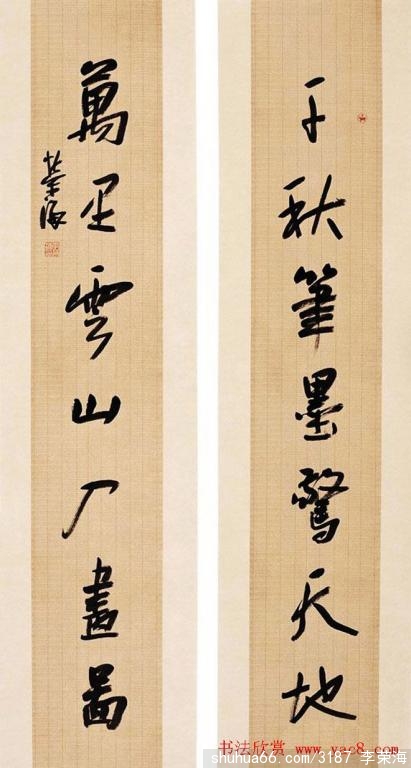 千秋筆墨驚天地
萬里雲山入畫圖
荣海
书法欣赏 www.yac8.com
shuhua66.com/3187 李荣海